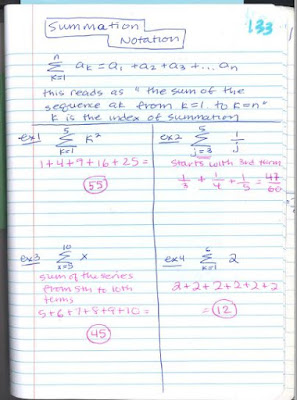 Summation
Notation
133
n
Σ aₖ = a₁ + a₂ + a₃ + ... aₙ
k=1
this reads as "the sum of the
sequence ak from k=1 to k=n"
k is the index of summation
ex1
5
Σ k²
k=1
1+4+9+16+25=
55
ex2
5
Σ 1/j
j=3
starts with 3rd term
1/3 + 1/4 + 1/5 = 47/60
ex3
10
Σ x
x=5
sum of the series
from 5th to 10th
terms
5+6+7+8+9+10=
45
ex4
6
Σ 2
k=1
2+2+2+2+2+2
= 12